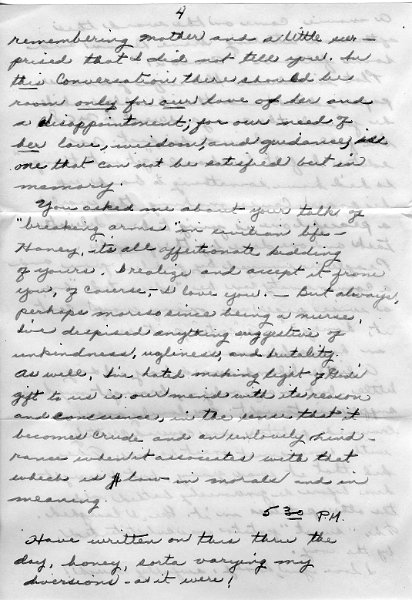 4
remembering Mother and a little sur-
prised that I did not tell you. In
this Conversation there should be
room only for our love of her and
a disappointment; for our need of
her love, wisdom, and guidance, is
one that can not be satisfied but in
memory.
You asked me about your talk of
"breaking arms" in life -
Honey, its all affectionate kidding
of yours. I realize and accept it from
you, of course, - I love you. - But always,
perhaps moreso since being a nurse,
I've despised anything suggestive of
unkindness, ugliness, and brutality.
As well, I've hated making light of God's
gift to us in our mind with its reason
and conscience, in the sense that it
becomes crude and an unlovely hind-
rance when it associates with that
which is low in morals and in
meaning.
5 30 P.M.
Have written on this thru the
day, honey, sorta varying my
diversions - as it were!